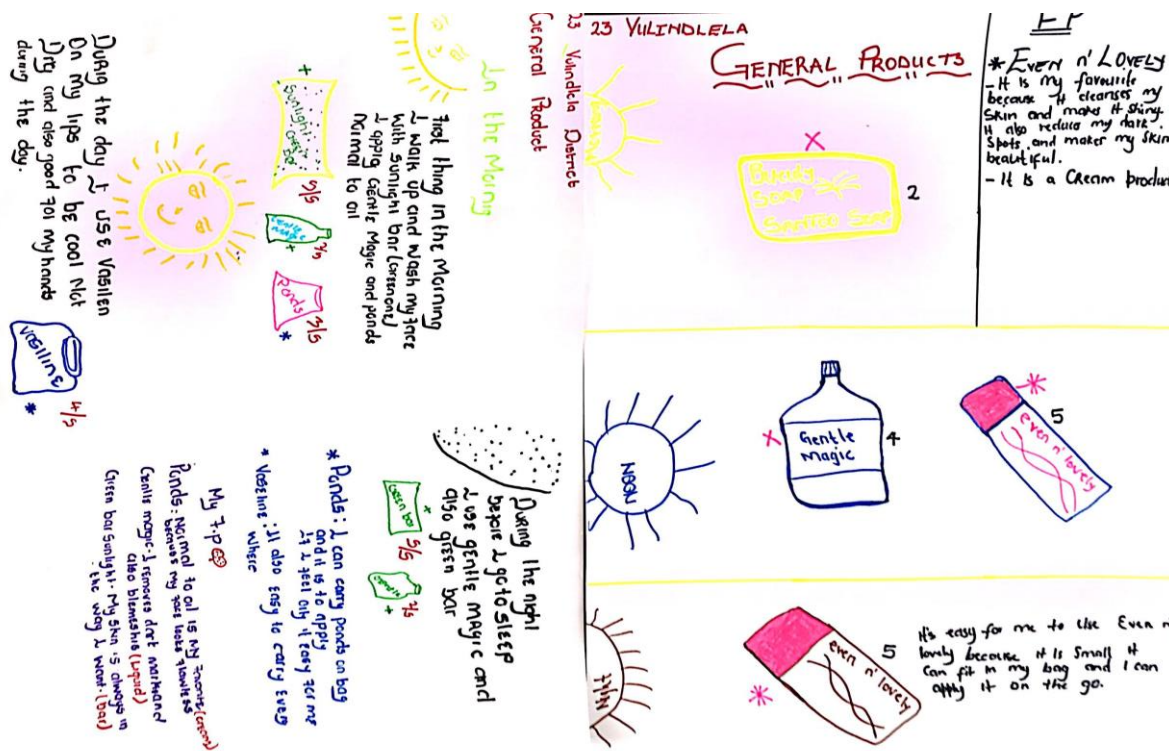 23 Vulindlela District
General Product
In the Mornig
First thing in the Morning
I walk up and wash my face
with sunlight bar (Green one)
I apply Gentle Magic and ponds
Normal to oil
Sunlight
Green Bar
5/5
Gentle magic
2/5
Ponds
3/5
*
Durig the day I USE Vasilen
On my lips to be cool Not
Dry and also good for my hands
during the day.
Vasiline
4/5
*
During the night
before I go to sleep
I use gentle magic and
also green bar
Green bar
5/5
2/5
* Ponds: I can cary ponds on bag
and it is to apply
If I feel oily it easy for me
* Vaseline: It also easy to carry Every
where
My F.P
Ponds: Normal to oil is My Favorite (cream)
because my face looks flawless
Gentle magic- I removes dart markand
also blemeshis (Liquid)
Green bar Sunlight- My skin is always in
the way I want. (bar)
23 YULINDLELA
GENERAL PRODUCTS
MORNING
Beauty
Soap
Spottoo Soap
2
FP
* EVEN n' LOVELY
- It is my favourite
because it cleanses my
Skin and makes it shiny.
It also reduce my dark
Spots, and maker my skin
beautiful.
- It is a Cream produc
NOON
Gentle
Magic
4
even n' lovely
5
even n' lovely
5
It's easy for me to Use Even n
lovely because it is Small it
Can fit in my bag and I can
apply it on the go.